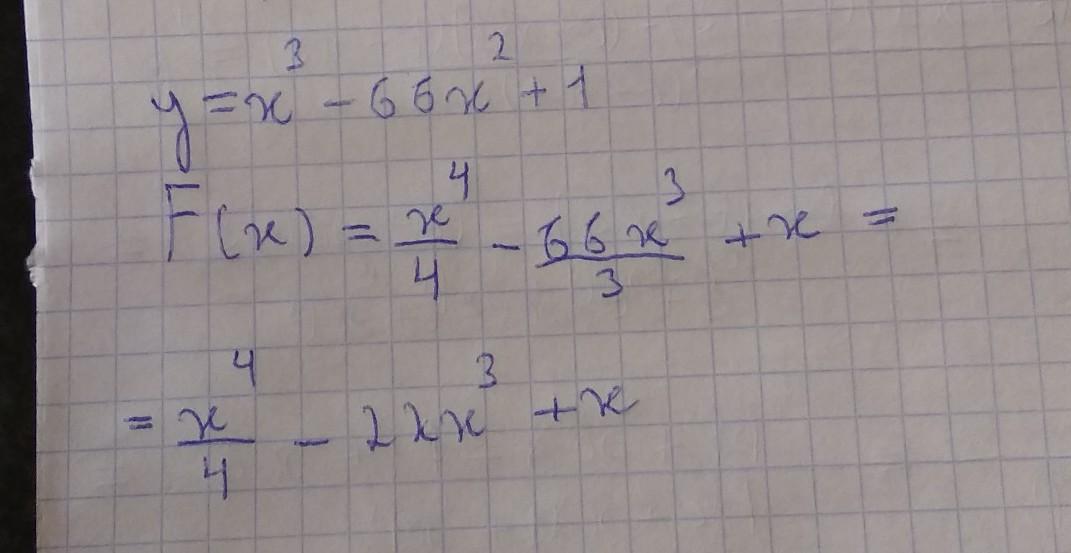 y = x³ - 66x² + 1
F(x) = x⁴/4 - 66x³/3 + x =
= x⁴/4 - 22x³ + x